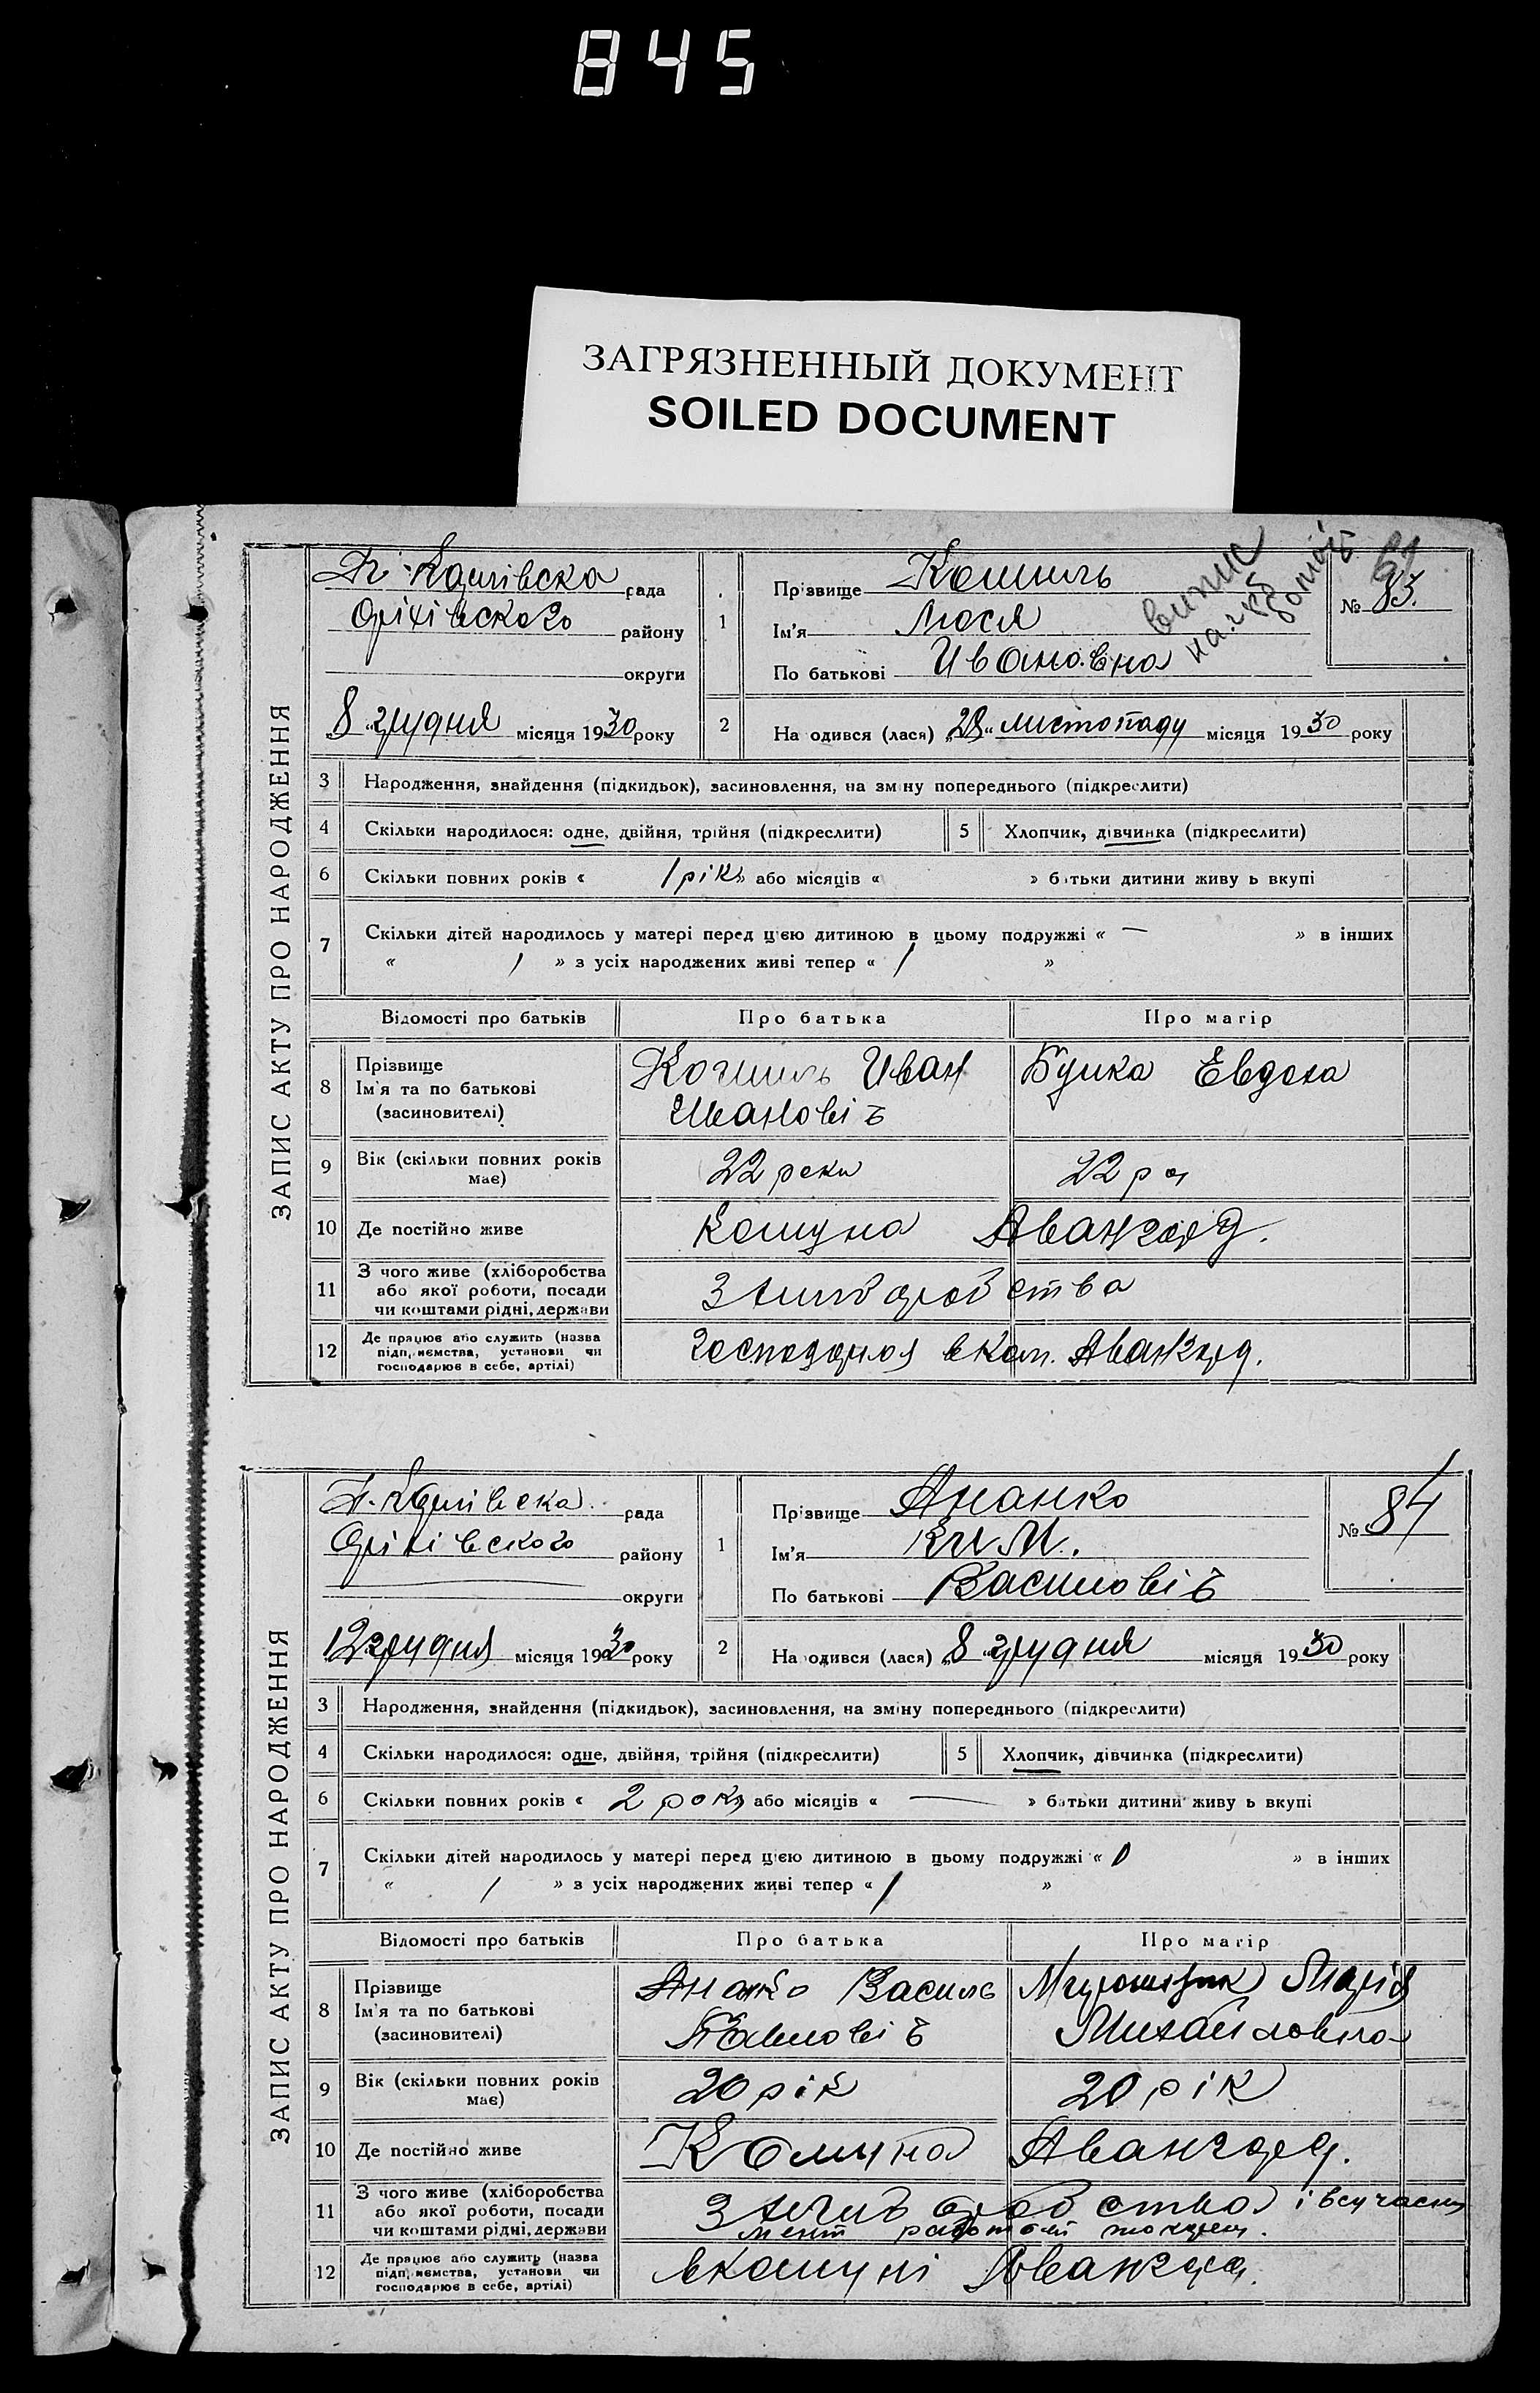 845
ЗАГРЯЗНЕННЫЙ ДОКУМЕНТ
SOILED DOCUMENT
ЗАПИС АКТУ ПРО НАРОДЖЕННЯ
рада
Оріхівского району
округи
8 грудня місяця 1930 року
1
Прізвище
Ім'я Люся
По батькові Ивановна
витяг
61
№ 83.
2 На одився (лася) „28“ листопаду місяця 1930 року
3 Народження, знайдення (підкидьок), засиновлення, на зміну попереднього (підкреслити)
4 Скільки народилося: одне, двійня, трійня (підкреслити) 5 Хлопчик, дівчинка (підкреслити)
6 Скільки повних років « 1 рік » або місяців « » батьки дитини живу ь вкупі
7 Скільки дітей народилось у матері перед цією дитиною в цьому подружжі « — » в інших
« 1 » з усіх народжених живі тепер « 1 »
Відомості про батьків Про батька Про матір
8 Прізвище
Ім'я та по батькові
(засиновителі)
Иван
Ивановіч
Евдоха
9 Вік (скільки повних років
має)
22 роки
22 ро
10 Де постійно живе Комуна Авангард.
11 З чого живе (хліборобства
або якої роботи, посади
чи коштами рідні, держави
З хлиборобства
12 Де працює або служить (назва
підприємства, установи чи
господарює в себе, артілі)
в ком. Авангард.
ЗАПИС АКТУ ПРО НАРОДЖЕННЯ
рада
Оріхівского району
округи
12 грудня місяця 1930 року
1
Прізвище Ананко
Ім'я Ким.
По батькові Василовіч
№ 84
2 На одився (лася) „8“ грудня місяця 1930 року
3 Народження, знайдення (підкидьок), засиновлення, на зміну попереднього (підкреслити)
4 Скільки народилося: одне, двійня, трійня (підкреслити) 5 Хлопчик, дівчинка (підкреслити)
6 Скільки повних років « 2 рок » або місяців « — » батьки дитини живу ь вкупі
7 Скільки дітей народилось у матері перед цією дитиною в цьому подружжі « 0 » в інших
« 1 » з усіх народжених живі тепер « 1 »
Відомості про батьків Про батька Про матір
8 Прізвище
Ім'я та по батькові
(засиновителі)
Ананко Василь
Марія
Михайловна
9 Вік (скільки повних років
має)
20 рік
20 рік
10 Де постійно живе Комуна Авангард.
11 З чого живе (хліборобства
або якої роботи, посади
чи коштами рідні, держави
З хлиборобства і всучасни
мент работой токаря.
12 Де працює або служить (назва
підприємства, установи чи
господарює в себе, артілі)
в комуні Авангард.